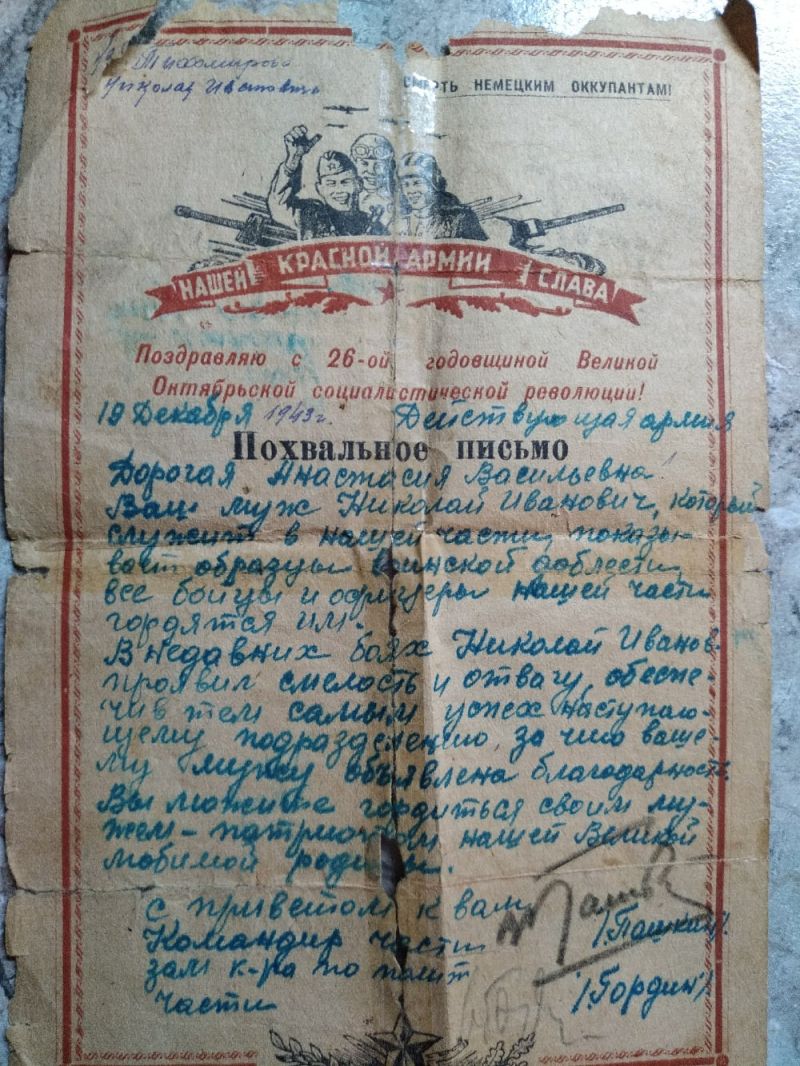 Тихомирова
Николая Ивановича
СМЕРТЬ НЕМЕЦКИМ ОККУПАНТАМ!
НАШЕЙ КРАСНОЙ АРМИИ СЛАВА
Поздравляю с 26-ой годовщиной Великой
Октябрьской социалистической революции!
19 Декабря 1943 г. Действующая армия
Похвальное письмо
Дорогая Анастасия Васильевна
Ваш муж Николай Иванович, который
служит в нашей части, показы-
вает образцы воинской доблести,
все бойцы и офицеры нашей части
гордятся им.
В недавних боях Николай Иванов.
проявил смелость и отвагу, обеспе-
чив тем самым успех наступаю-
щему подразделению, за что ваше-
му мужу объявлена благодарность.
Вы можите гордиться своим му-
жем - патриотом нашей Великой
любимой родины.
С приветом к вам
Командир части /Пашкин/
зам к-ра по полит
части /Гордин/